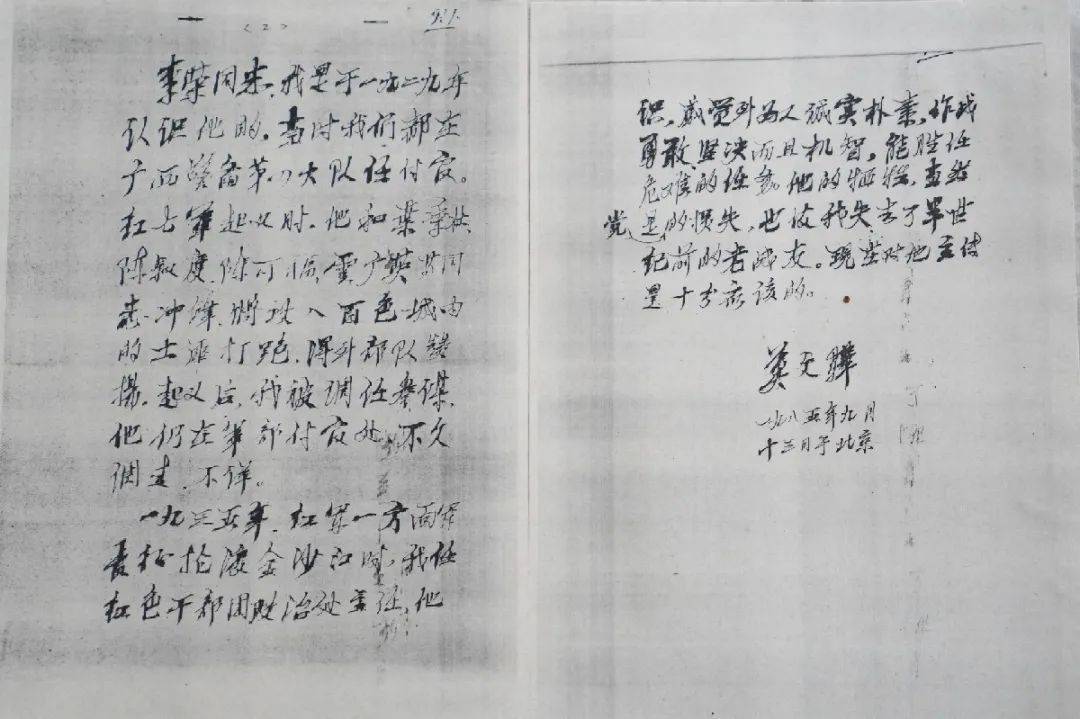 <2>
李荣同志，我是于一九二九年
认识他的。当时我们都在
广西警备第八大队任付官。
红七军起义时，他和叶季壮
陈叙度，陈可福，云广英等同
志冲锋，将攻入百色城内
的土匪打跑，得到部队赞
扬。起义后，我被调任参谋，
他仍在军部付官处，不久
调走，不详。
一九三五年，红军一方面军
长征抢渡金沙江时，我任
红色干部团政治处主任，他
识，感觉到为人诚实朴素，作战
勇敢，坚决而且机智，能胜任
危难的任务，他的牺牲，当然
是党的损失，也使我失去了半世
纪前的老战友。现在对他立传
是十分应该的。
莫文骅
一九八五年九月
十三日于北京